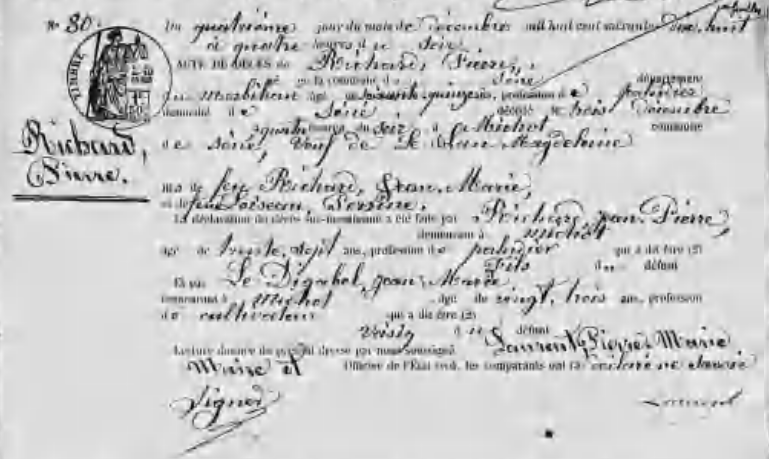 N° 80.
Du quatrième jour du mois de Décembre mil huit cent soixante dix huit
à quatre heures du Soir
ACTE DE DÉCÈS de Richard, Pierre,
né en la commune de Séné département
du Morbihan âgé de soixante quinze ans, profession de paludier
demeurant à Séné, décédé le trois Décembre
à quatre heures du soir à Michot commune
de Séné, Veuf de Le Blan Magdeleine
Richard,
Pierre.
fils de feu Richard, Jean Marie,
et de feue Loiseau, Perrine.
La déclaration du décès sus-mentionné a été faite par Richard, Jean Pierre,
demeurant à Michot
âgé de trente sept ans, profession de paludier qui a dit être (2)
Fils du défunt
Et par Le Digabel, Jean Marie
demeurant à Michot âgé de vingt trois ans, profession
de cultivateur qui a dit être (2)
Voisin du défunt
Lecture donnée du présent dressé par nous soussigné Laurent Pierre Marie
Maire et Officier de l'État civil, les comparants ont déclaré ne savoir
Signer
Laurent
TIMBRE